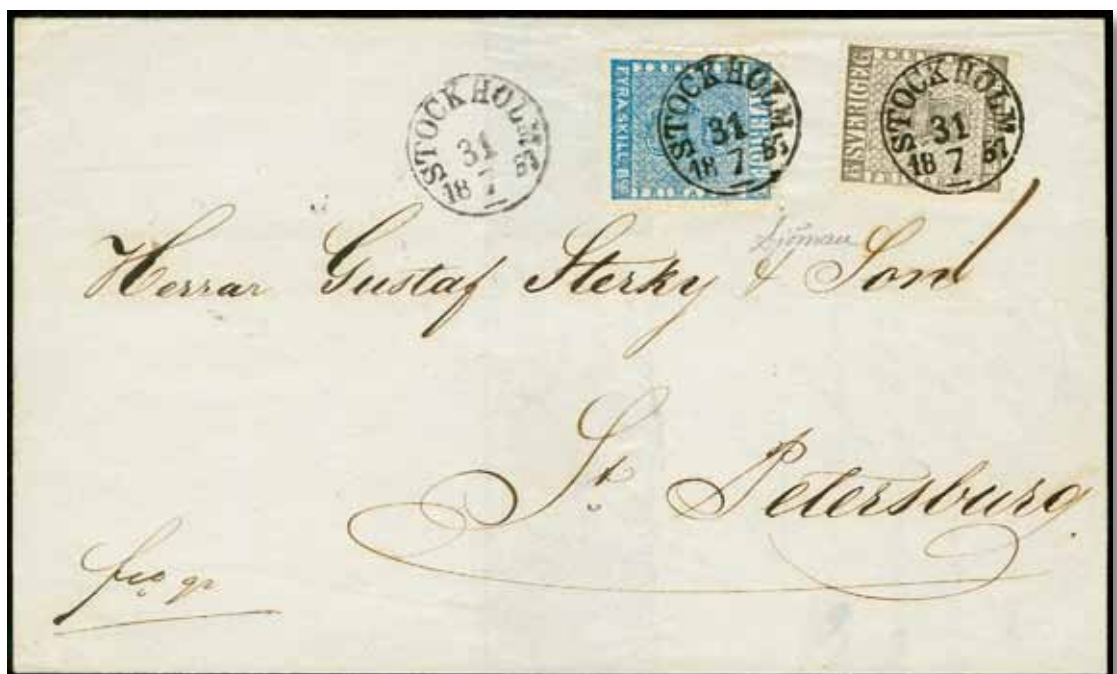 STOCKHOLM
31
18 7 57
FYRA SKILL. Bco
SVERIGE
STOCKHOLM
31
18 7 57
SVERIGE
STOCKHOLM
31
18 7 57
Sjöman
Herrar Gustaf Sterky & Son
St Petersburg
fco gr